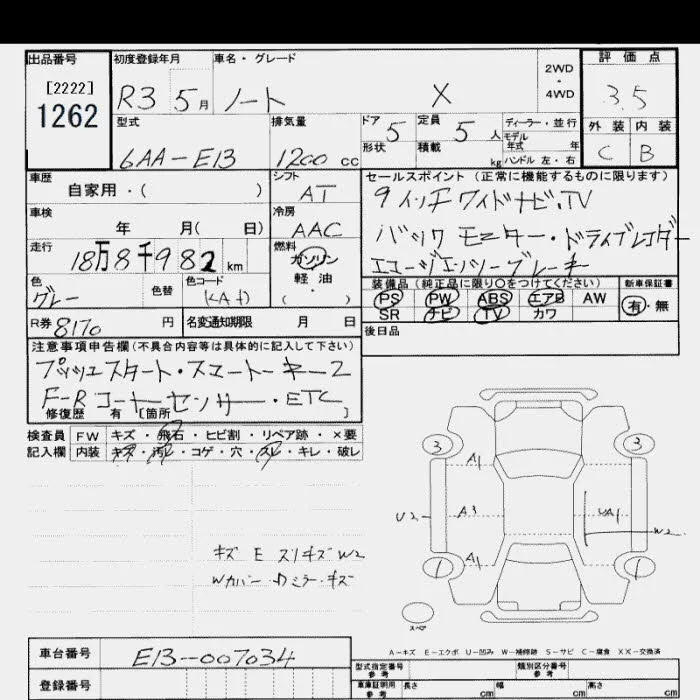 出品番号
[2222]
1262
初度登録年月
R3 5月
車名・グレード
ノート X
2WD
・
4WD
評価点
3.5
外装 内装
C B
型式
6AA-E13
排気量
1200 cc
ドア 5
形状
定員 5 人
積載 kg
ディーラー・並行
モデル年式 年
ハンドル 左・右
車歴
自家用・( )
シフト
AT
セールスポイント(正常に機能するものに限ります)
9インチワイドナビ.TV
バックモニター・ドライブレコーダー
ブレーキ
車検
年 月( 日)
冷房
AAC
走行
18万8千982 km
燃料
ガソリン
軽油
・( )
色
グレー
色替
色コード
(KAd)
装備品(純正品に限り○をつけてください)
PS PW ABS エアB AW
SR ナビ TV カワ
新車保証書
有・無
R券 8170 円
名変通知期限 月 日
後日品
注意事項申告欄(不具合内容等は具体的に記入して下さい)
プッシュスタート・スマートキー2
F-Rコーナーセンサー・ETC
修復歴 有 [箇所 ]
検査員 FW キズ・飛石・ヒビ割・リペア跡・×要
記入欄 内装 キズ・汚レ・コゲ・穴・スレ・キレ・破レ
3 3
A1
U2 A3 UA1
W2
A1
1 1
キズ E スリキズ W2
Wカバー・Dミラーキズ
スペア
A-キズ E-エクボ U-凹み W-補修跡 S-サビ C-腐食 XX-交換済
車台番号
E13-007034
登録番号
型式指定番号
参考
類別区分番号
参考
車庫証明用
参考
長さ cm 幅 cm 高さ cm